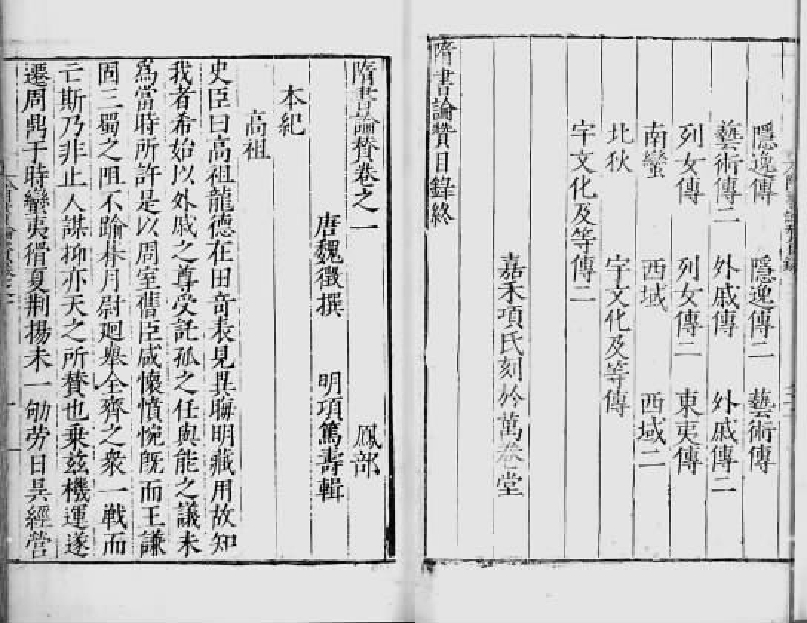 隱逸傳 隱逸傳二 藝術傳
藝術傳二 外戚傳 外戚傳二
列女傳 列女傳二 東夷傳
南蠻 西域 西域二
北狄 宇文化及等傳
宇文化及等傳二
嘉禾項氏刻於萬卷堂
隋書論贊目錄終
隋書論贊卷之一 鳳部
唐魏徵撰 明項篤壽輯
本紀
高祖
史臣曰高祖龍德在田奇表見異晦明藏用故知
我者希始以外戚之尊受託孤之任與能之議未
爲當時所許是以周室舊臣咸懷憤惋旣而王謙
固三蜀之阻不踰朞月尉迥舉全齊之衆一戰而
亡斯乃非止人謀抑亦天之所贊也乗兹機運遂
遷周鼎于時蠻夷猾夏荆揚未一劬勞日昃經營